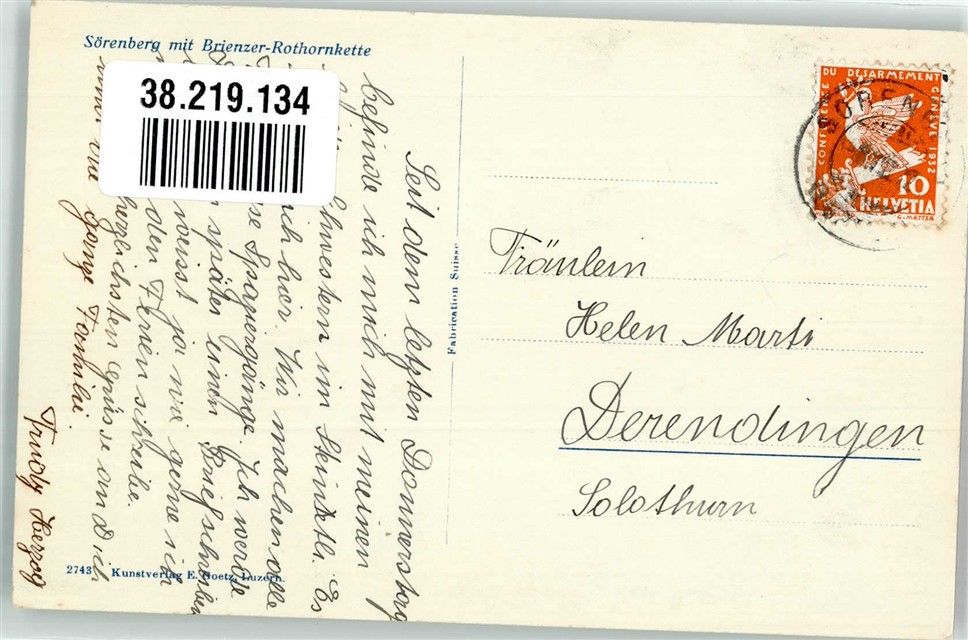 Sörenberg mit Brienzer-Rothornkette
38.219.134
Seit dem letzten Donnerstag
befinde ich mich mit meinen
Schwestern im Stündeli. Es
ich hier. Wir machen alle
Spaziergänge. Ich werde
später einen Brief schreiben
weisst ja wie gerne ich
den Ferien schreibe.
herzlichsten Grüsse an Dich
und die ganze Familie.
Trudly Herzog
Fabrication Suisse
2743 Kunstverlag E. Goetz, Luzern.
CONFERENCE DU DESARMEMENT GENEVE 1932
10
HELVETIA
SÖREN
Fräulein
Helen Marti
Derendingen
Solothurn